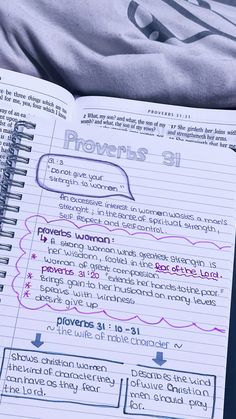 PROVERBS 31:31
be three things which are
Do not give your
What, my son? and what, the son of my
17 She girdeth her loins with
and strengtheneth her arms.
Proverbs 31
31:3
"Do not give your
strength to women"
An excessive interest in women wastes a man's
strenght; in the sense of spiritual strength,
self respect and self control.
proverbs woman:
↳ A strong woman who's greatest strength is
her wisdom, rooted in the fear of the Lord.
* Woman of great compassion
proverbs 31:20 "extends her hands to the poor."
* Brings gain to her husband on many levels
* speaks with kindness
* doesn't give up
proverbs 31:10-31
the wife of noble character
Shows christian women
the kind of character they
can have as they fear
the Lord.
Describes the kind
of wive Christian
men should pray
for.